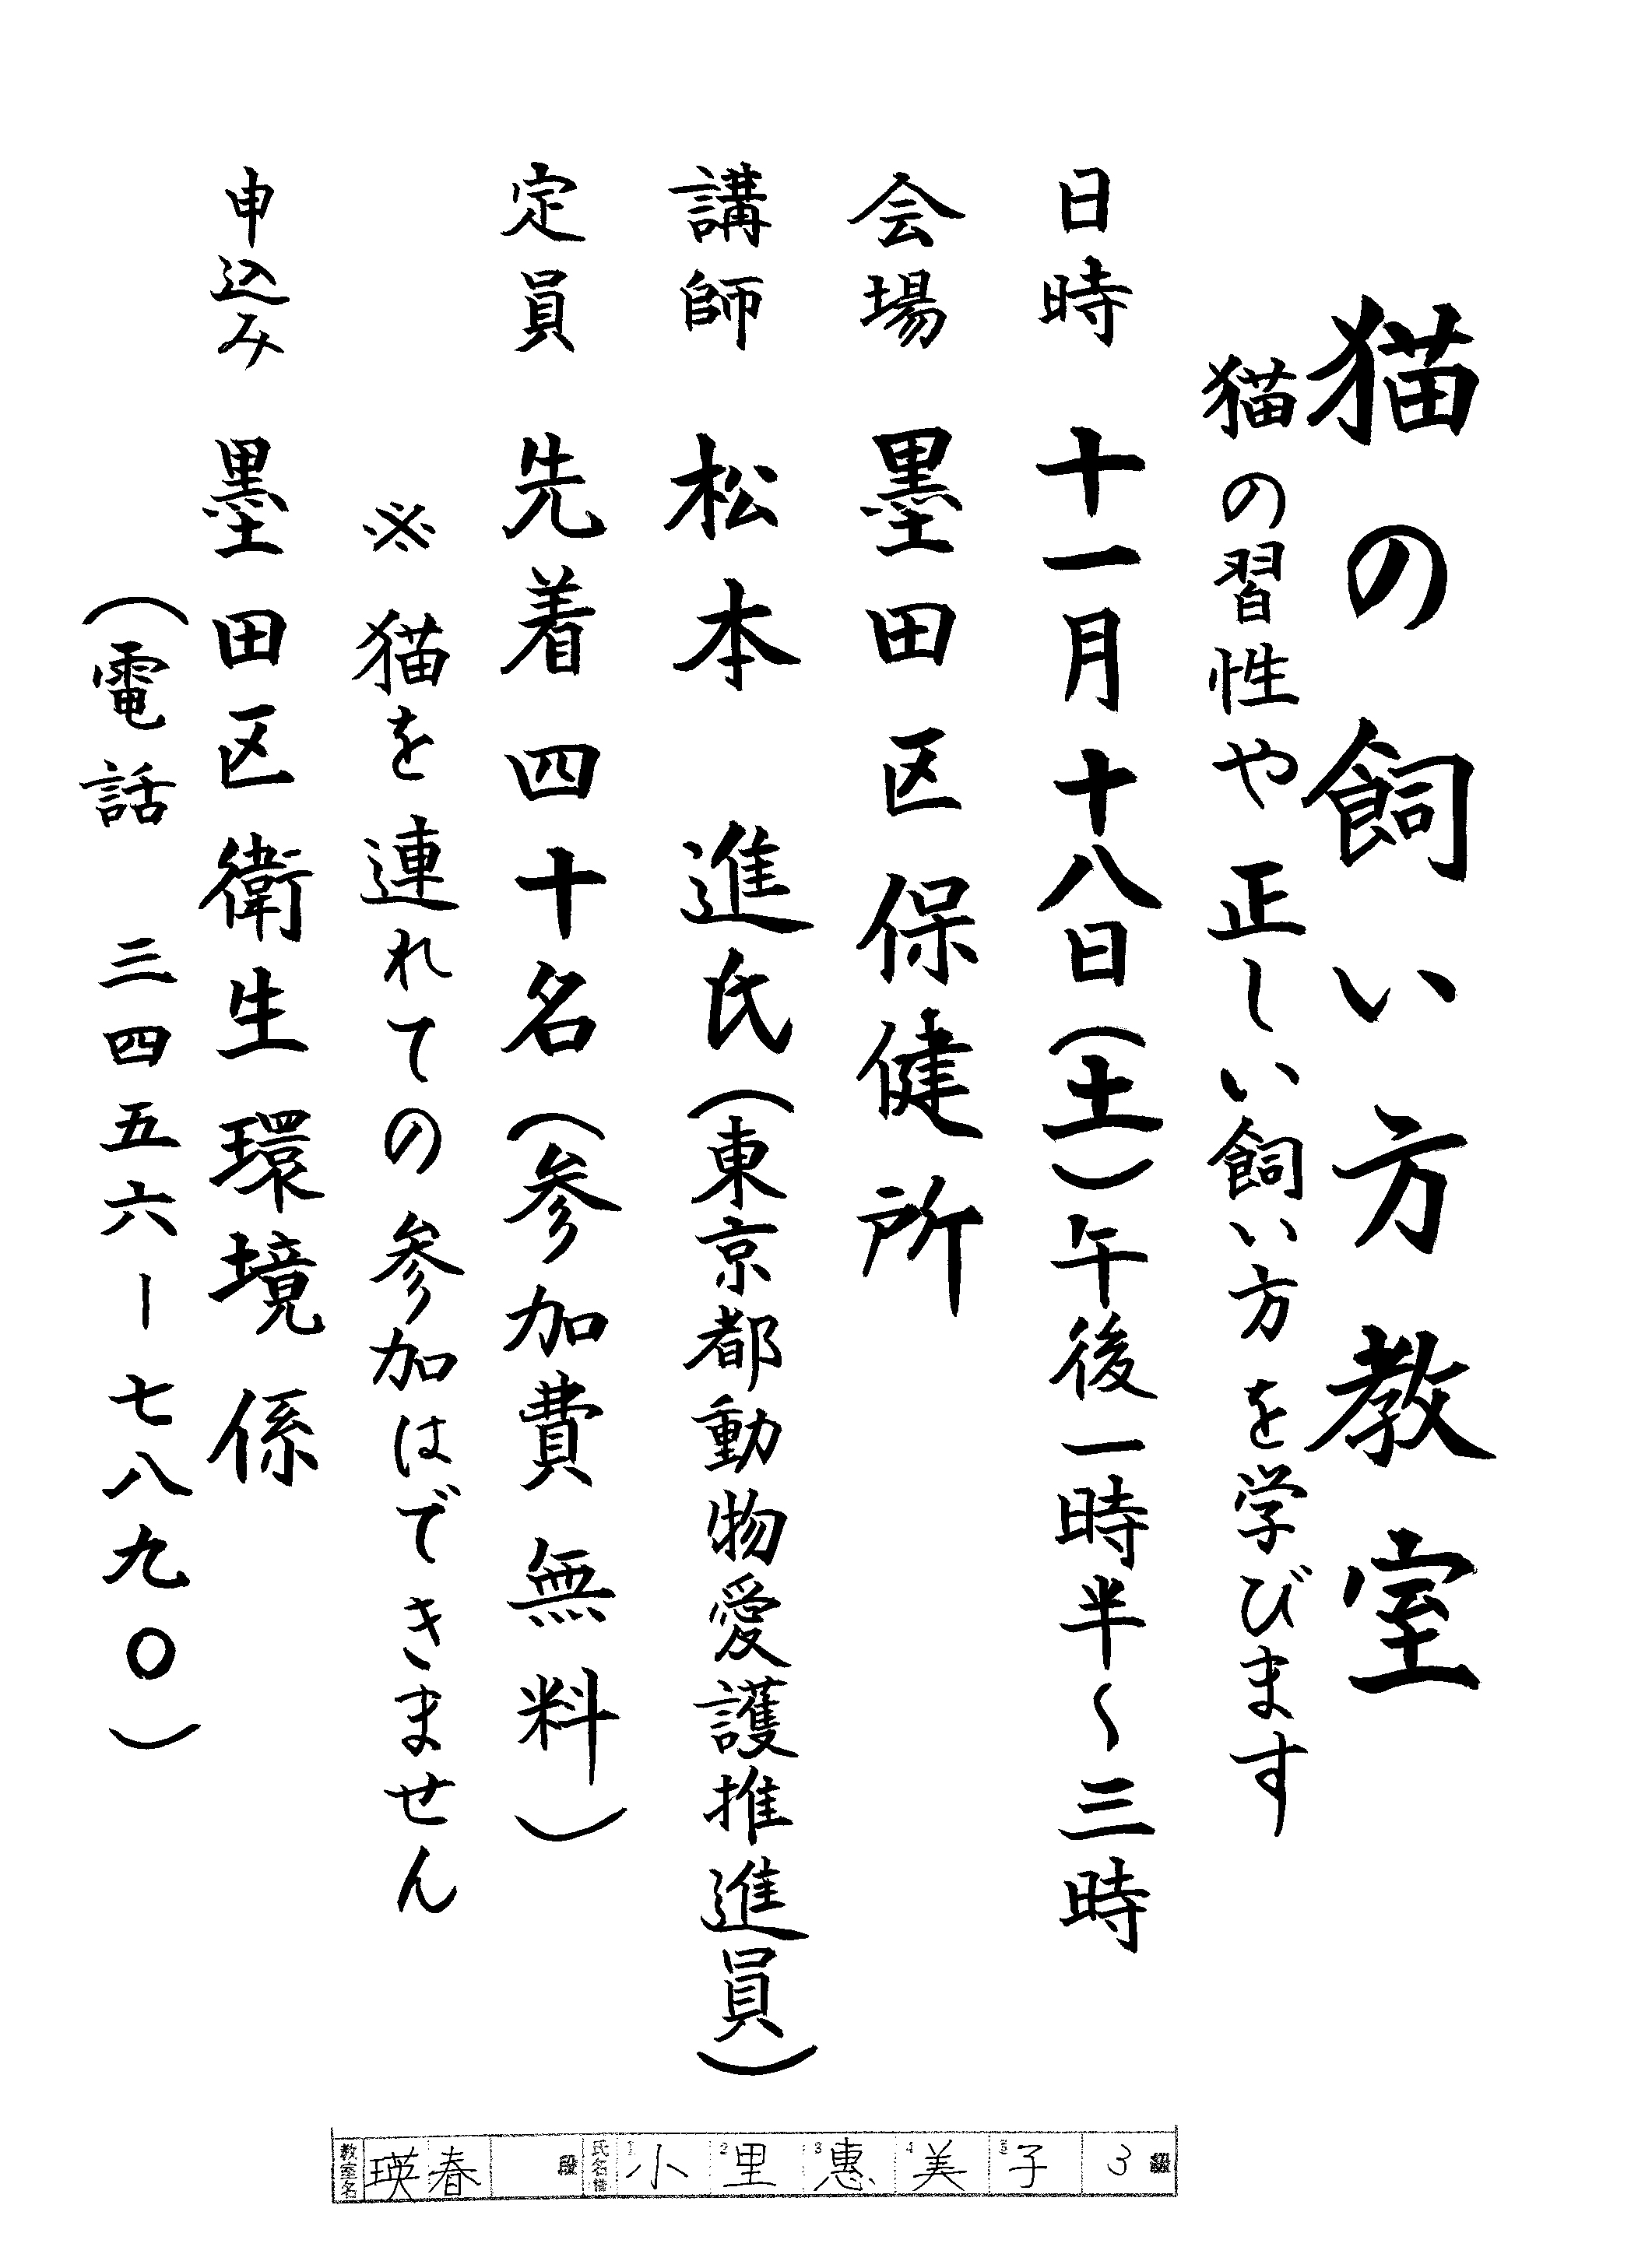 猫の飼い方教室
猫の習性や正しい飼い方を学びます
日時 十一月十八日(土)午後一時半〜三時
会場 墨田区保健所
講師 松本 進氏(東京都動物愛護推進員)
定員 先着四十名(参加費無料)
※猫を連れての参加はできません
申込み 墨田区衛生環境係
(電話 三四五六ー七八九〇)
教室名 瑛春 段 氏名 1小 2里 3惠 4美 5子 3 級